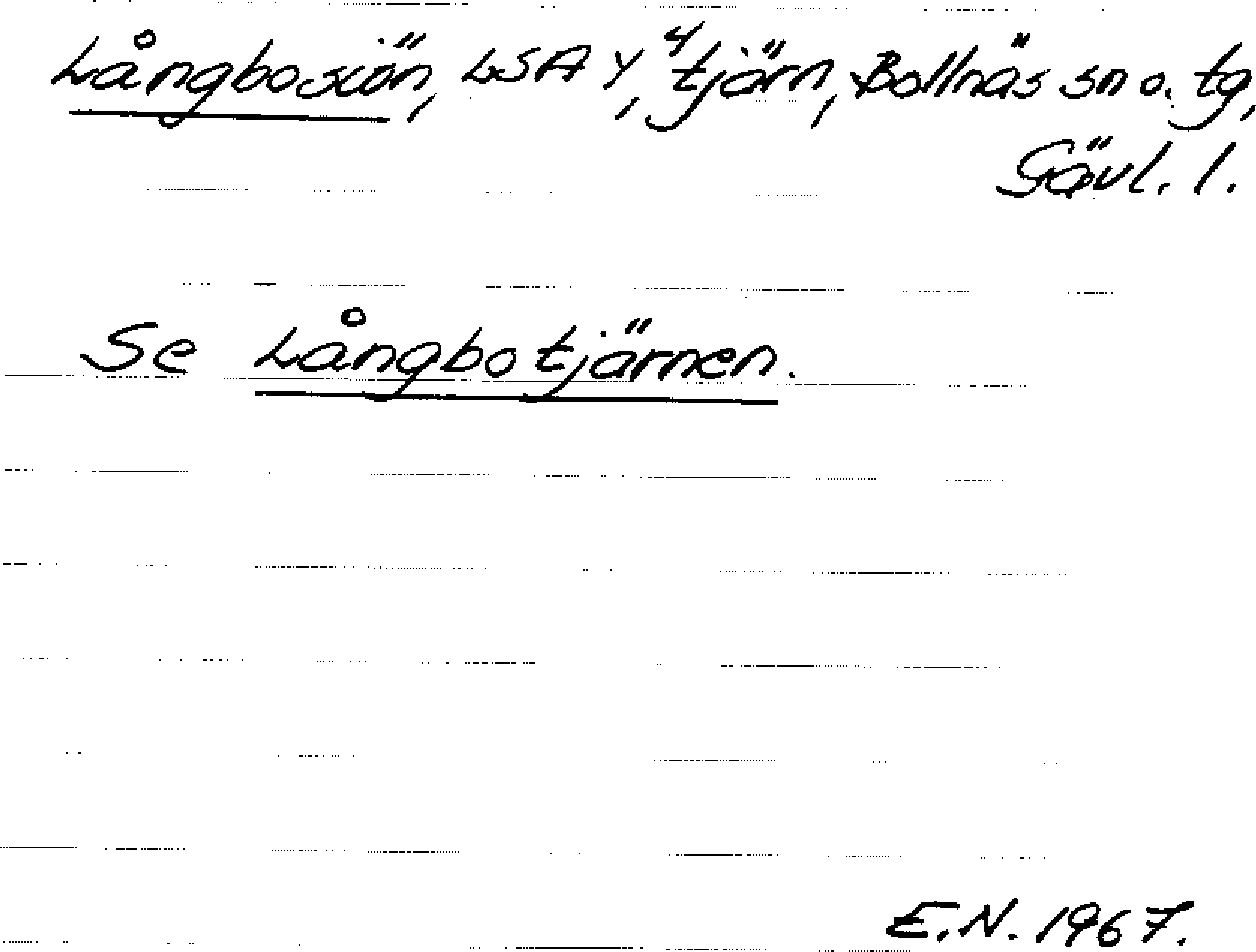 Långbosiön, LSA Y, 4 tjärn, Bollnäs sn o. tg,
Gävl. l.
Se Långbotjärnen.
E.N. 1967.